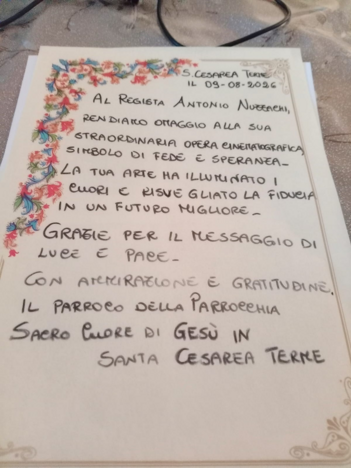 S. CESAREA TERME
IL 09-08-2026
AL REGISTA ANTONIO
RENDIAMO OMAGGIO ALLA SUA
STRAORDINARIA OPERA CINEMATOGRAFICA,
SIMBOLO DI FEDE E SPERANZA-
LA TUA ARTE HA ILLUMINATO I
CUORI E RISVEGLIATO LA FIDUCIA
IN UN FUTURO MIGLIORE-
GRAZIE PER IL MESSAGGIO DI
LUCE E PACE-
CON AMMIRAZIONE E GRATITUDINE.
IL PARROCO DELLA PARROCCHIA
SACRO CUORE DI GESÙ IN
SANTA CESAREA TERME